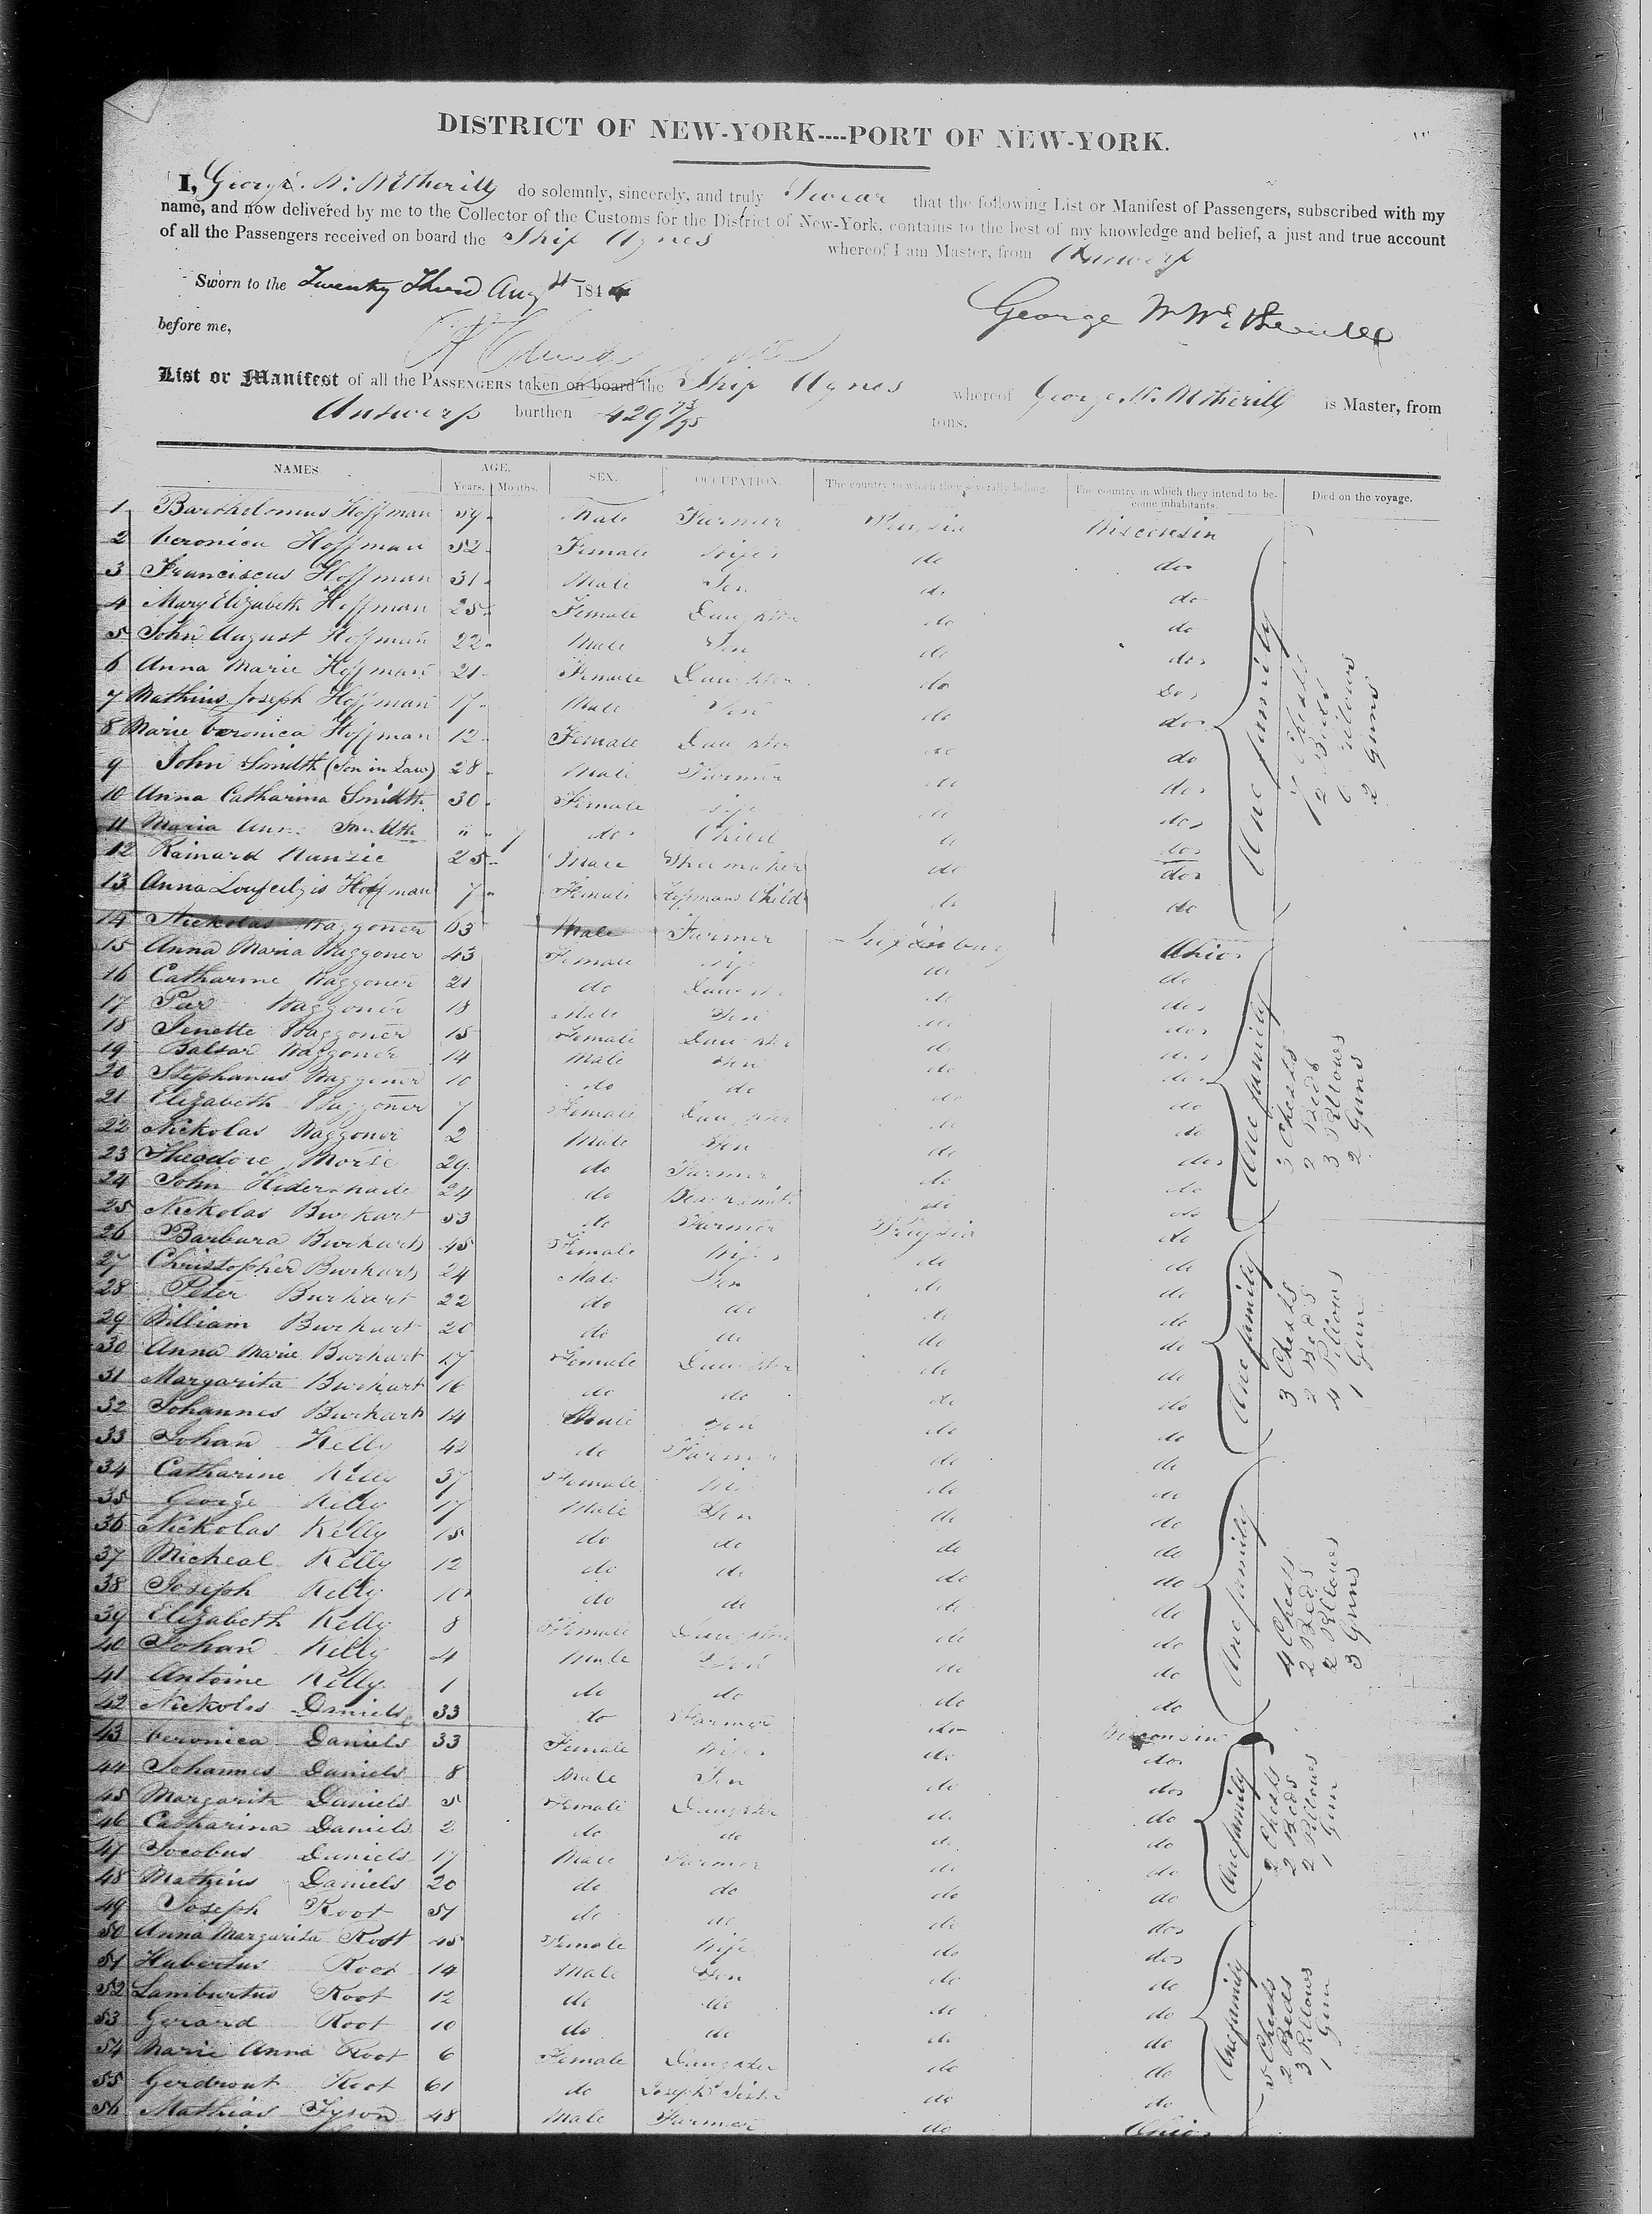 DISTRICT OF NEW-YORK----PORT OF NEW-YORK.
I, George W. Wetherill do solemnly, sincerely, and truly Swear that the following List or Manifest of Passengers, subscribed with my
name, and now delivered by me to the Collector of the Customs for the District of New-York, contains to the best of my knowledge and belief, a just and true account
of all the Passengers received on board the Ship Agnes whereof I am Master, from Antwerp
Sworn to the Twenty Third Augst 1844
before me,
George W Wetherill
List or Manifest of all the PASSENGERS taken on board the Ship Agnes whereof George W. Wetherill is Master, from
Antwerp burthen 429 73/95 tons.
NAMES AGE. Years. Months. SEX. OCCUPATION. The country to which they severally belong. The country in which they intend to become inhabitants. Died on the voyage.
1 Bartholomus Hoffman 59 Male Farmer Prussia Wisconsin
2 Veronica Hoffman 52 Female Wife do do
3 Franciscus Hoffman 31 Male Son do do
4 Mary Elizabeth Hoffman 25 Female Daughter do do
5 John August Hoffman 22 Male Son do do
6 Anna Marie Hoffman 21 Female Daughter do Do
7 Mathius Joseph Hoffman 17 Male Son do do
8 Marie Veronica Hoffman 12 Female Daughter do do
9 John Smidth (Son in Law) 28 Male Farmer do do
10 Anna Catharina Smidth 30 Female Wife do do
11 Maria Ann Smidth " 7 do Child do do
12 Rainard 25 Male Shoemaker do do
13 Anna Hoffman 7 Female Hoffmans Child do do
One family
7 Chests
2 Beds
6 Pillows
2 Guns
14 Nickolas Waggoner 63 Male Farmer Luxenburg Ohio
15 Anna Maria Waggoner 43 Female Wife do do
16 Catharine Waggoner 21 do Daughter do do
17 Waggoner 18 Male Son do do
18 Jenette Waggoner 15 Female Daughter do do
19 Baltsar Waggoner 14 Male Son do do
20 Stephanus Waggoner 10 do do do do
21 Elizabeth Waggoner 7 Female Daughter do do
22 Nickolas Waggoner 2 Male Son do do
23 Theodore Morse 29 do Farmer do do
24 John 24 do Blacksmith do do
One family
3 Chests
2 Beds
3 Pillows
2 Guns
25 Nickolas Burkart 53 do Farmer Prussia do
26 Barbara Burkart 45 Female Wife do do
27 Christopher Burkart 24 Male Son do do
28 Peter Burkart 22 do do do do
29 William Burkart 20 do do do do
30 Anna Marie Burkart 17 Female Daughter do do
31 Margarita Burkart 16 do do do do
32 Johannes Burkart 14 Male Son do do
One family
3 Chests
2 Beds
4 Pillows
1 Gun
33 Johan Kelly 42 do Farmer do do
34 Catharine Kelly 37 Female Wife do do
35 George Kelly 17 Male Son do do
36 Nickolas Kelly 15 do do do do
37 Micheal Kelly 12 do do do do
38 Joseph Kelly 10 do do do do
39 Elizabeth Kelly 8 Female Daughter do do
40 Johan Kelly 4 Male Son do do
41 Antoine Kelly 1 do do do do
One family
4 Chests
2 Beds
2 Pillows
3 Guns
42 Nickolas Daniels 33 do Farmer do Wisconsin
43 Veronica Daniels 33 Female Wife do do
44 Johannes Daniels 8 Male Son do do
45 Margarita Daniels 5 Female Daughter do do
46 Catharina Daniels 2 do do do do
47 Jocobus Daniels 17 Male Farmer do do
48 Mathius Daniels 20 do do do do
One family
2 Chests
2 Beds
2 Pillows
1 Gun
49 Joseph Root 51 do do do do
50 Anna Margarita Root 45 Female Wife do do
51 Hubertus Root 14 Male Son do do
52 Lamburtus Root 12 do do do do
53 Gerard Root 10 do do do do
54 Marie Anna Root 6 Female Daughter do do
55 Gerdrout Root 61 do Josephs Sister do do
One family
5 Chests
2 Beds
3 Pillows
1 Gun
56 Mathias Tyson 48 Male Farmer do Ohio